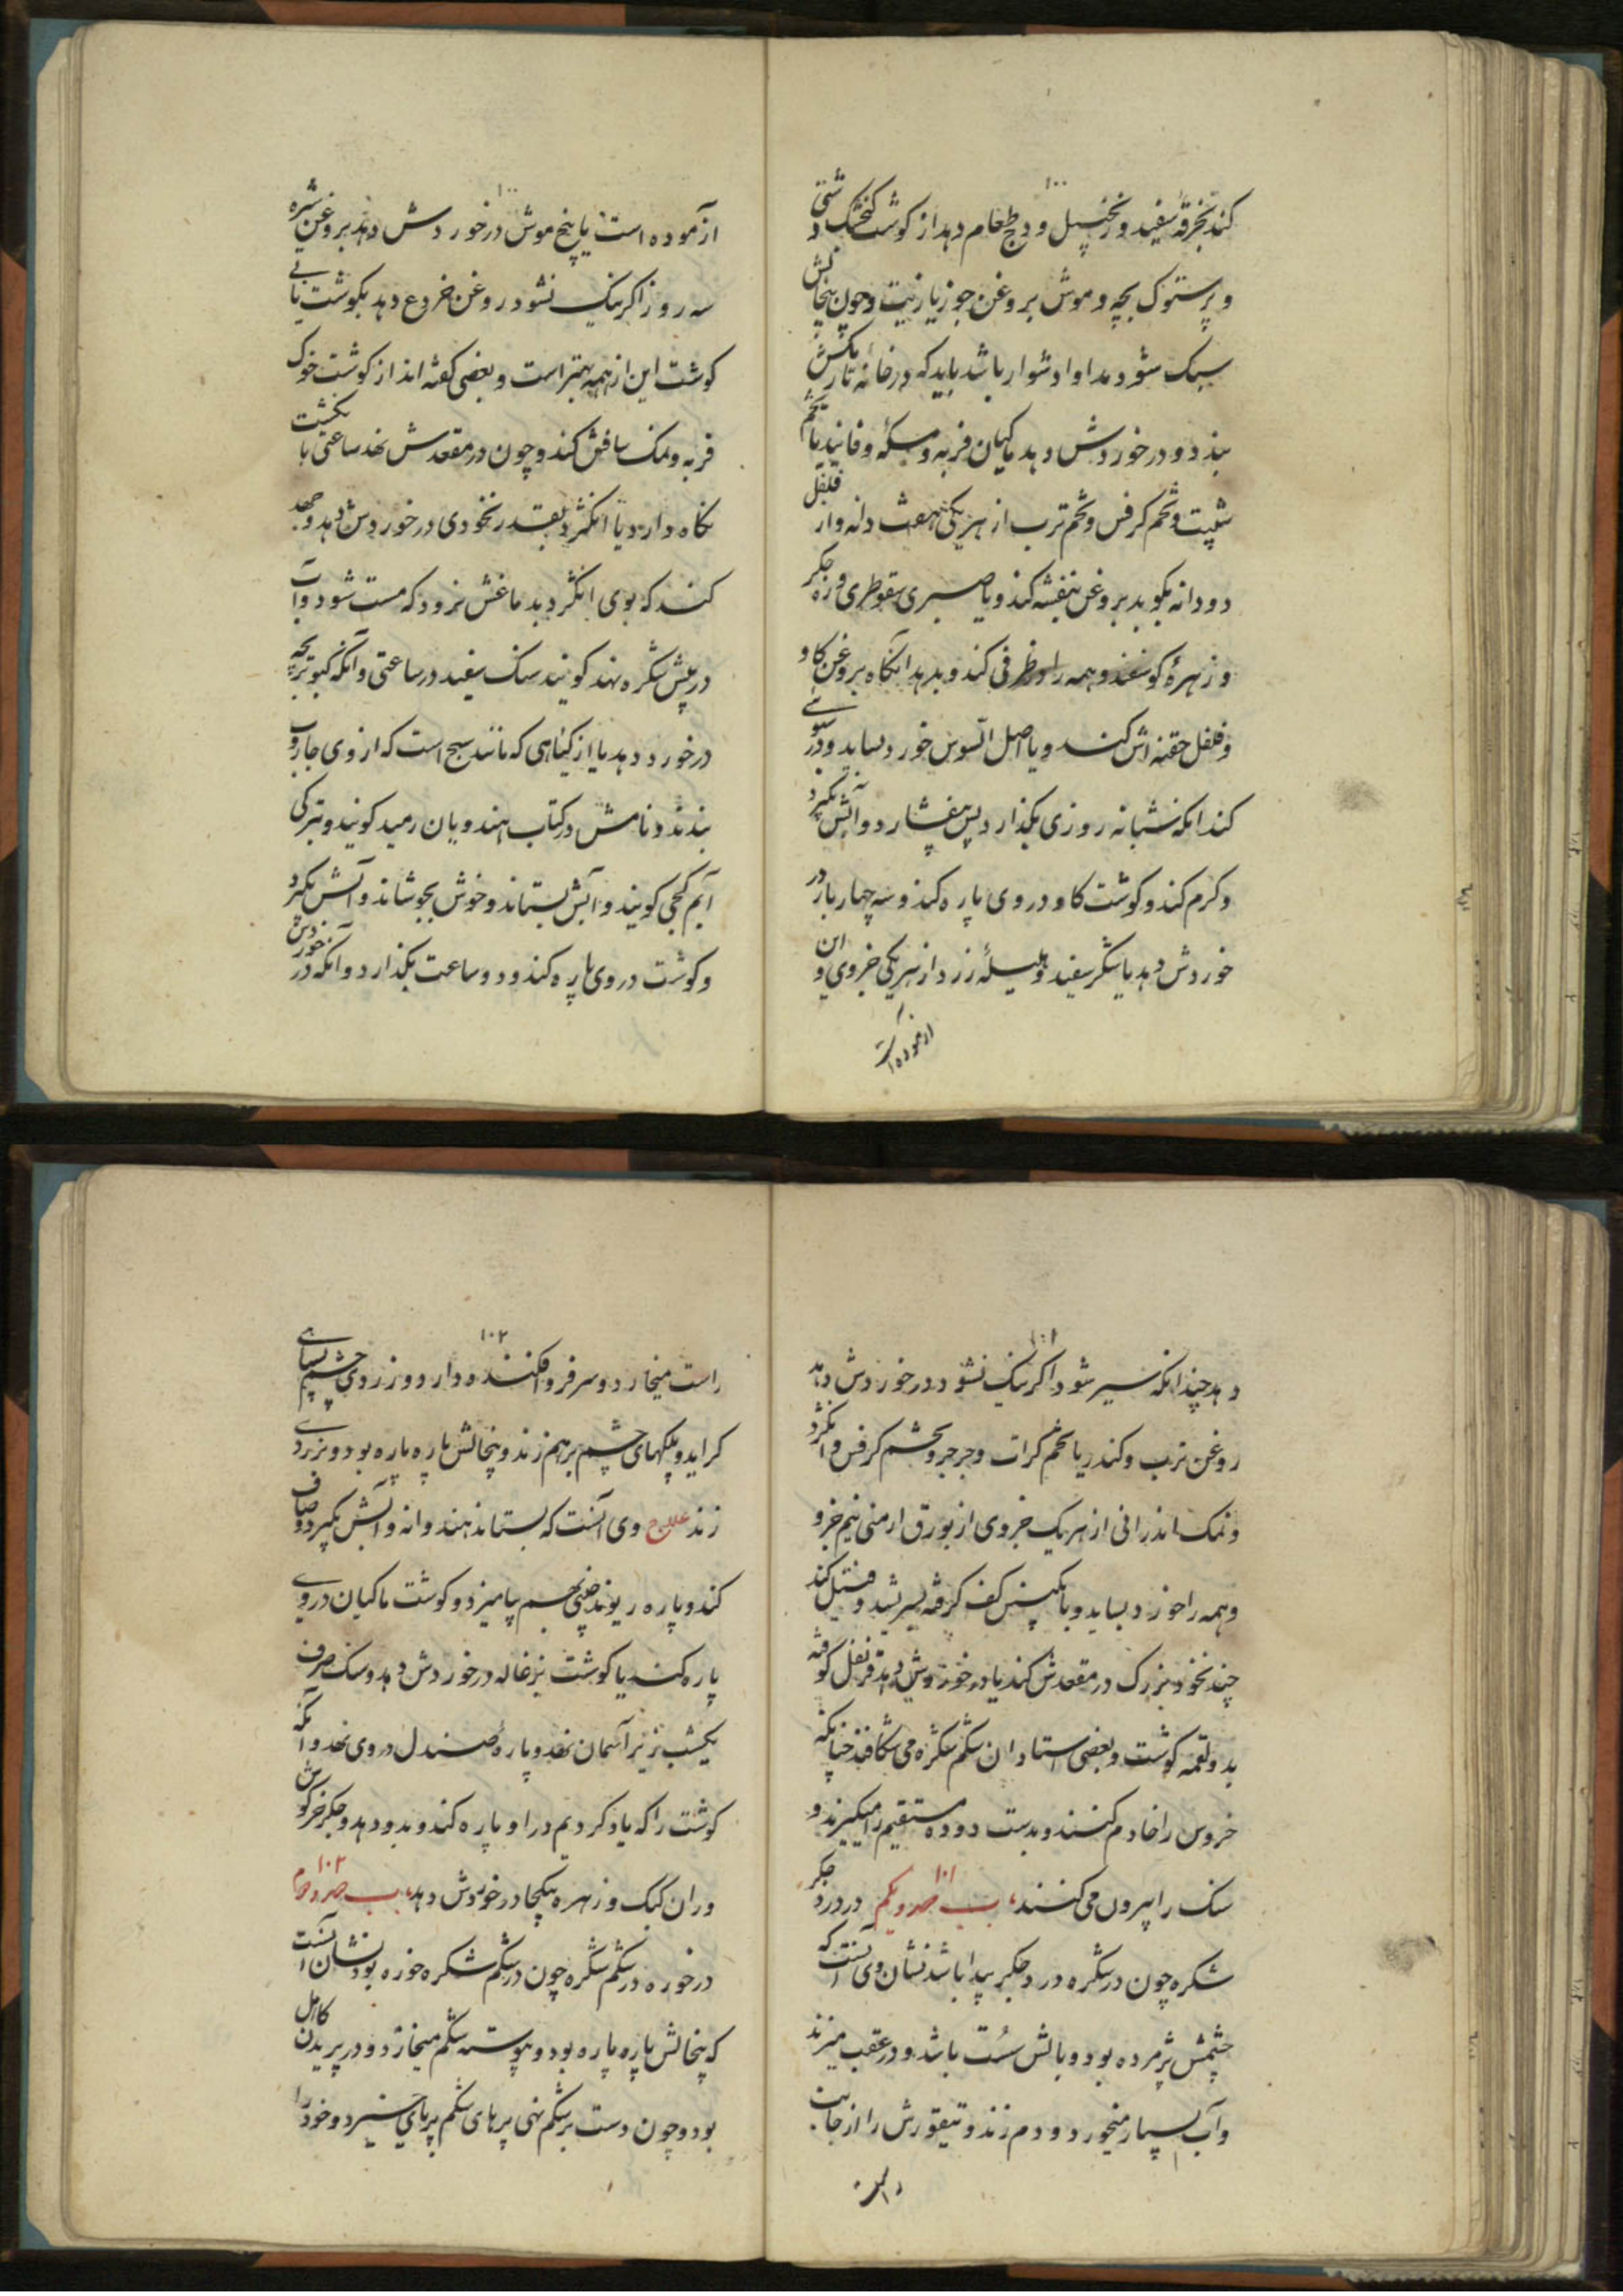 ۱۰۰
کند بخرقهٔ سفید و زنجبیل و دج طعام دهد از کوشت کنجشک دشتی
و پرستوک بچه و موش بروغن جوز یا زیت و چون پنجالش
سبک شود مداوا دشوار باشد باید که در خانه تاریکش
ببندد و در خوردش دهد ماکیان فربه و مسکه و فانید یا تخم
شبت و تخم کرفس و تخم ترب از هر یکی هفت دانه وار فلفل
دو دانه بکوبد بروغن بنفشه کند و یا صبر سقوطری و زه جکر
و زهرهٔ کوسفند و همه را در ظرفی کند و بدهد انکاه بروغن کاو
و فلفل حقنه اش کند و یا اصل السوس خورد بساید و در
کند انکه شبانه روزی بکذارد پس بیفشارد و آتش بکیرد
و کرم کند و کوشت کاو در وی پاره کند و سه چهار بار در
خوردش دهد یا شکر سفید و هلیلهٔ زرد از هر یکی جزوی و این
ازموده است
۱۰۰
ازموده است یا پنج موش در خوردش دهد بروغن شیره
سه روز اکر نیک نشود روغن خروع دهد بکوشت یا بی
کوشت این از همه بهتر است و بعضی کفته اند از کوشت خوک
فربه و نمک سافش کند و چون در مقعدش نهد ساعتی با نکشت
نکاه دارد یا انکژد بقدر نخودی در خوردش دهد و جهد
کند که بوی انکژد بدماغش نرود که مست شود و آب
در پیش شکره نهد کویند سنک سفید در ساعتی و آنکه کبوتر بچه
در خورد دهد یا از کیاهی که مانند سیج است که از وی جاروب
بندند و نامش در کتاب هندویان رمید کویند و بترکی
آیم کجی کویند و آبش بستاند و خوش بجوشاند و آتش بکیرد
و کوشت در وی پاره کند و دو ساعت بکذارد و آنکه در خوردش
۱۰۱
دهد چندانکه سیر شود اکر نیک نشود در خوردش دهد
روغن ترب و کندر یا تخم کراث و جرجر و تخم کرفس و انکژد
و نمک اندرانی از هر یک جزوی از بورق ارمنی نیم جزو
و همه را خورد بساید و با نکبین کف کرفته بسرشد و فتیل کند
چند نخود بزرک در مقعدش کند یا در خوردش دهد قرنفل کوفته
بدو لقمه کوشت و بعضی استادان شکم شکره می شکافند چنانکه
خروس را خادم کنند و بدست روده مستقیم را میکیرند و
سنک را بیرون می کنند باب صد و یکم ۱۰۱ در درد جکر
شکره چون در شکره درد جکر پیدا باشد نشان وی آنست که
چشمش پژمرده بود و بالش سُست باشد و در عقب میزند
و آب بسیار میخورد و دم زند و تیقورش را از جانب
راست
۱۰۲
راست میخارد و سر فرو افکنده دارد و وز روی چشم بسیاهی
کراید و پلکهای چشم بر هم زند و پنجالش پاره پاره بود و بزردی
زند علاج وی آنست که بستاند هندوانه و آبش بکیرد و صاف
کند و پاره ریوند چینی بهم بیامیزد و کوشت ماکیان در وی
پاره کند یا کوشت بزغاله در خوردش دهد و سنک صرف
یکشب زیر آسمان نهد و پارهٔ صندل در وی نهد و آنکه
کوشت را که یاد کردیم در او پاره کند و بدو دهد و جکر خرکوش
و ران کبک و زهره بیکجا در خوردش دهد باب صد و دوم ۱۰۲
در خوره در شکم شکره چون در شکم شکره خوره بود نشان آنست
که پنجالش پاره پاره بود و پیوسته شکم میخارد و در پریدن کاهل
بود و چون دست بر شکم نهی پرهای شکم بر پای خیزد و خود را